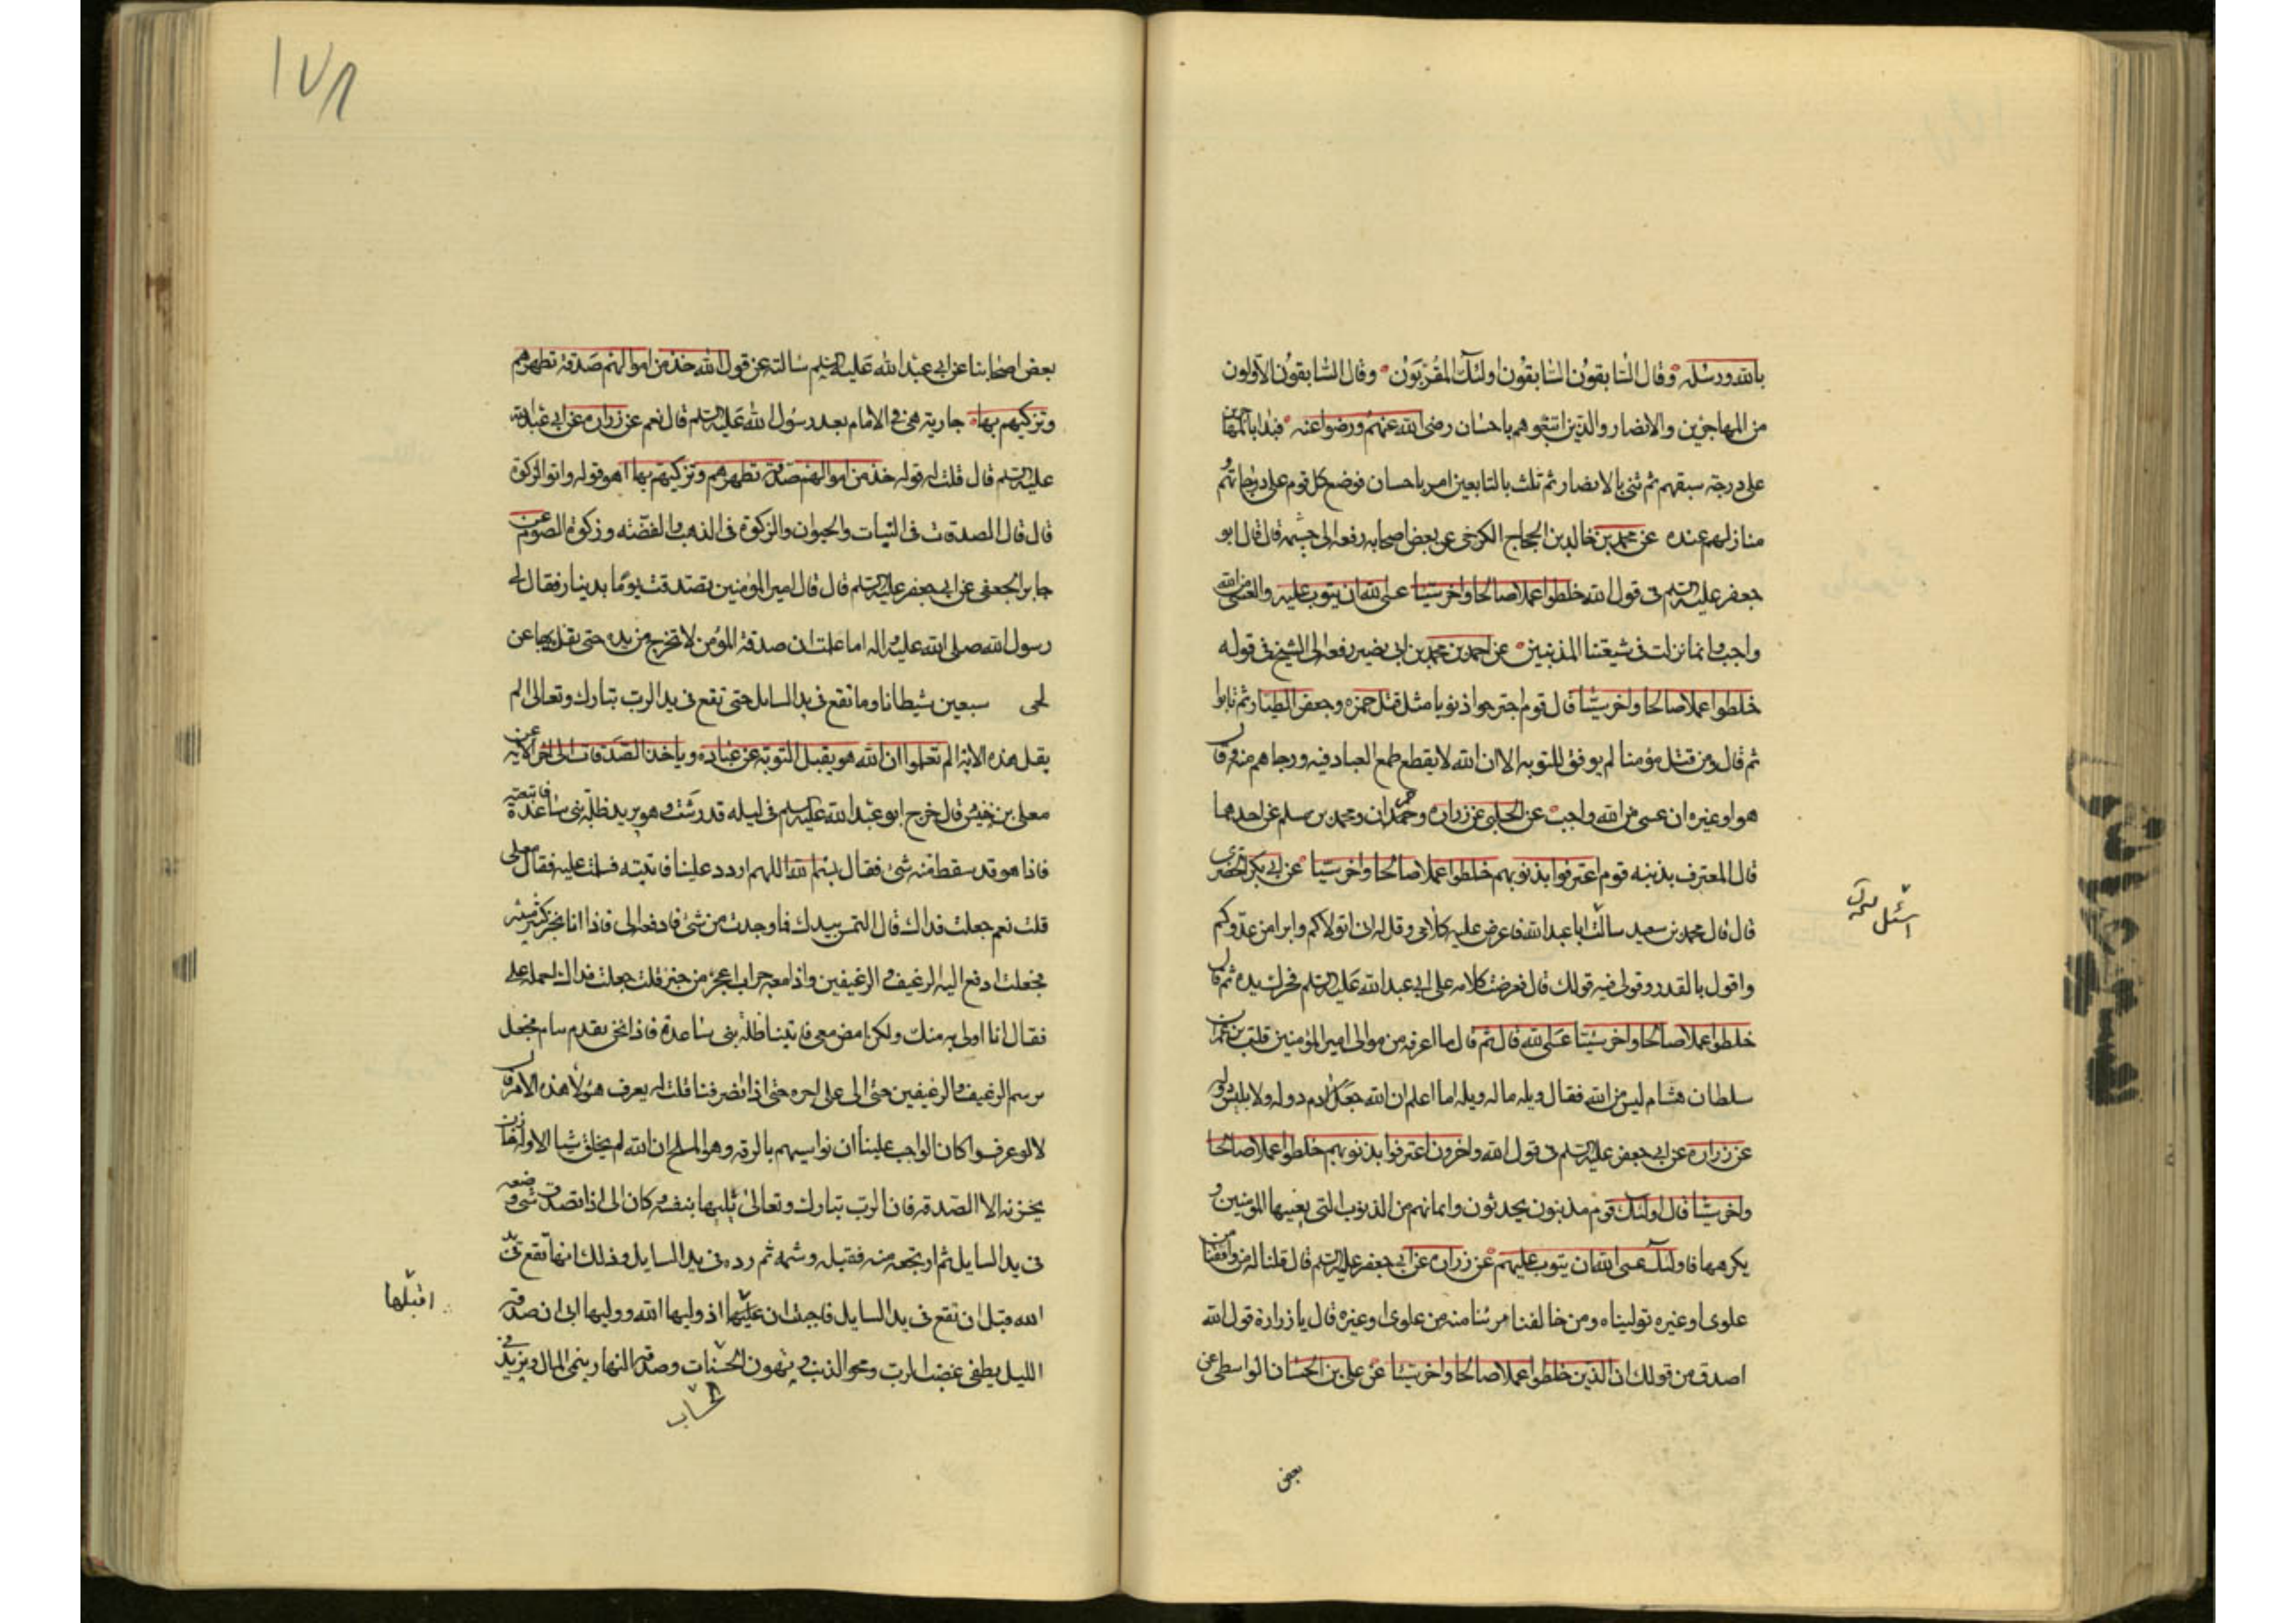 بالله ورسله وقال السابقون السابقون اولئك المقربون وقال السابقون الاولون
من المهاجرين والانصار والذين اتبعوهم باحسان رضى الله عنهم ورضوا عنه فبدا بالمهاجرين
على درجة سبقهم ثم ثنى بالانصار ثم ثلث بالتابعين امر باحسان فوضع كل قوم على درجاتهم و
منازلهم عنده عن محمد بن خالد بن الحجاج الكرخى عن بعض اصحابه رفعه الى خيثمه قال قال ابو
جعفر عليه السلم فى قول الله خلطوا عملا صالحا واخر سيئا عسى الله ان يتوب عليه والعسى من الله
واجب وانما نزلت فى شيعتنا المذنبين عن احمد بن محمد بن ابى نصير رفعه الى الشيخ فى قوله
خلطوا عملا صالحا واخر سيئا قال قوم اجترحوا ذنوبا مثل قتل حمزه وجعفر الطيار ثم تابوا
ثم قال ومن قتل مؤمنا لم يوفق للتوبه الا ان الله لا يقطع طمع العباد فيه ورجاهم منه وقال
هو او غيره ان عسى من الله واجب عن الحلبى عن زراره وحمران ومحمد بن مسلم عن احدهما
قال المعترف بذنبه قوم اعترفوا بذنوبهم خلطوا عملا صالحا واخر سيئا عن ابى بكر الحضرمى
قال قال محمد بن سعيد سالت ابا عبد الله فاعرض عليه كلامى وقل له انى اتولاكم وابرا من عدوكم
واقول بالقدر وقولى فيه قولك قال فعرضت كلامه على ابى عبد الله عليه السلم فحرك يده ثم قال
خلطوا عملا صالحا واخر سيئا عسى الله قال ثم قال ما اعرفه من موالى امير المؤمنين قلت يزعم ان
سلطان هشام ليس من الله فقال ويله ما له ويله اما اعلم ان الله جعل لادم دوله ولابليس دوله
عن زراره عن ابى جعفر عليه السلم فى قول الله واخرون اعترفوا بذنوبهم خلطوا عملا صالحا
واخر سيئا قال اولئك قوم مذنبون يحدثون وايمانهم من الذنوب التى يعيبها المؤمنين و
يكرهها فاولئك عسى الله ان يتوب عليهم عن زراره عن ابى جعفر عليه السلم قال قلنا له من وافقنا من
علوى او غيره توليناه ومن خالفنا برئنا منه من علوى او غيره قال يا زرارة قول الله
اصدق من قولك ان الذين خلطوا عملا صالحا واخر سيئا عن على بن الحسان الواسطى عن
بعض
١٧٨
بعض اصحابنا عن ابى عبد الله عليه السلم سالته عن قول الله خذ من اموالهم صدقة تطهرهم
وتزكيهم بها جارية هى فى الامام بعد رسول الله عليه السلم قال نعم عن زراره عن ابى عبد الله
عليه السلم قال قلت له قوله خذ من اموالهم صدقة تطهرهم وتزكيهم بها اهو قوله واتوا الزكوة
قال قال الصدقات فى النبات والحيوان والزكوة فى الذهب والفضه وزكوة الصوم عن
جابر الجعفى عن ابى جعفر عليه السلم قال قال امير المؤمنين تصدقت يوما بدينار فقال لى
رسول الله صلى الله عليه واله اما علمت ان صدقة المؤمن لا تخرج من يده حتى يفك بها عن
لحى سبعين شيطانا وما تقع فى يد السايل حتى تقع فى يد الرب تبارك وتعالى الم
يقل هذه الاية الم تعلموا ان الله هو يقبل التوبة عن عباده وياخذ الصدقات الى اخر الاية عن
معلى بن خنيس قال خرج ابو عبد الله عليه السلم فى ليله قد رشت وهو يريد ظلة بنى ساعدة فاتبعته
فاذا هو قد سقط منه شئ فقال بسم الله اللهم اردد علينا فاتيته فسلمت عليه فقال معلى
قلت نعم جعلت فداك قال التمس بيدك فما وجدت من شئ فادفعه الى فاذا انا بخبز كثير منتشر
فجعلت ادفع اليه الرغيف والرغيفين واذا معه جراب اعجز من خبز قلت جعلت فداك احمله على
فقال انا اولى به منك ولكن امض معى فاتينا ظلة بنى ساعدة فاذا نحن بقوم نيام فجعل
يرسم الرغيف والرغيفين حتى الى على اخره حتى اذا انصرفنا قلت له يعرف هؤلاء هذه الامر قال
لا لو عرفوا كان الواجب علينا ان نواسيهم بالدقه وهو الملح ان الله لم يخلق شيئا الا وله خازن
يخزنه الا الصدقه فان الرب تبارك وتعالى يليها بنفسه وكان ابى اذا تصدق شئ وضعه
فى يد السايل ثم ارتجعه منه فقبله وشمه ثم رده فى يد السايل وذلك انها تقع فى يد
الله قبل ان تقع فى يد السايل فاحببت ان عليها اذ وليها الله ووليها ابى ان صدقة
الليل يطفى غضب الرب وتمحو الذنب ويهون الحسنات وصدقة النهار ينمى المال ويزيد فى
اقبلها
الحساب